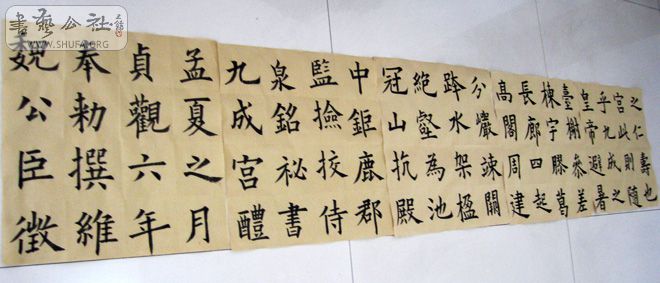 書藝公社
WWW.SHUFA.ORG
魏公臣徵
奉勅撰維
貞觀六年
孟夏之月
九成宮醴
泉銘祕書
監撿挍侍
中鉅鹿郡
冠山抗殿
絕壑為池
跨水架楹
分巖竦闕
高閣周建
長廊四起
棟宇膠葛
臺榭參差
皇帝避暑
乎九成之
宮此則隨
之仁壽也